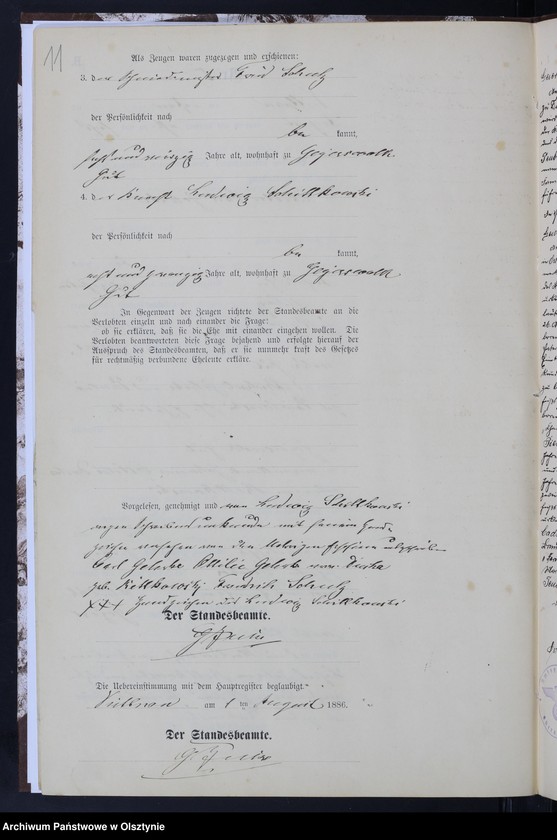 11
Als Zeugen waren zugezogen und erschienen:
3. der Schmiedemeister Fried
der Persönlichkeit nach
be kannt,
Jahre alt, wohnhaft zu Geyerswalde
Gut
4. der Knecht Ludwig Schittkowski
der Persönlichkeit nach
be kannt,
acht und zwanzig Jahre alt, wohnhaft zu Geyerswalde
Gut
In Gegenwart der Zeugen richtete der Standesbeamte an die
Verlobten einzeln und nach einander die Frage:
ob sie erklären, daß sie die Ehe mit einander eingehen wollen. Die
Verlobten beantworteten diese Frage bejahend und erfolgte hierauf der
Ausspruch des Standesbeamten, daß er sie nunmehr kraft des Gesetzes
für rechtmäßig verbundene Eheleute erkläre.
Vorgelesen, genehmigt und von Ludwig Schittkowski
wegen Schreibens unkunde mit seinem Hand
zeichen versehen von den Uebrigen
Carl Ottilie
geb. Friedrich
XXX Handzeichen des Ludwig Schittkowski
Der Standesbeamte.
Die Uebereinstimmung mit dem Hauptregister beglaubigt.
am 1 ten August 1886.
Der Standesbeamte.
Archiwum Państwowe w Olsztynie